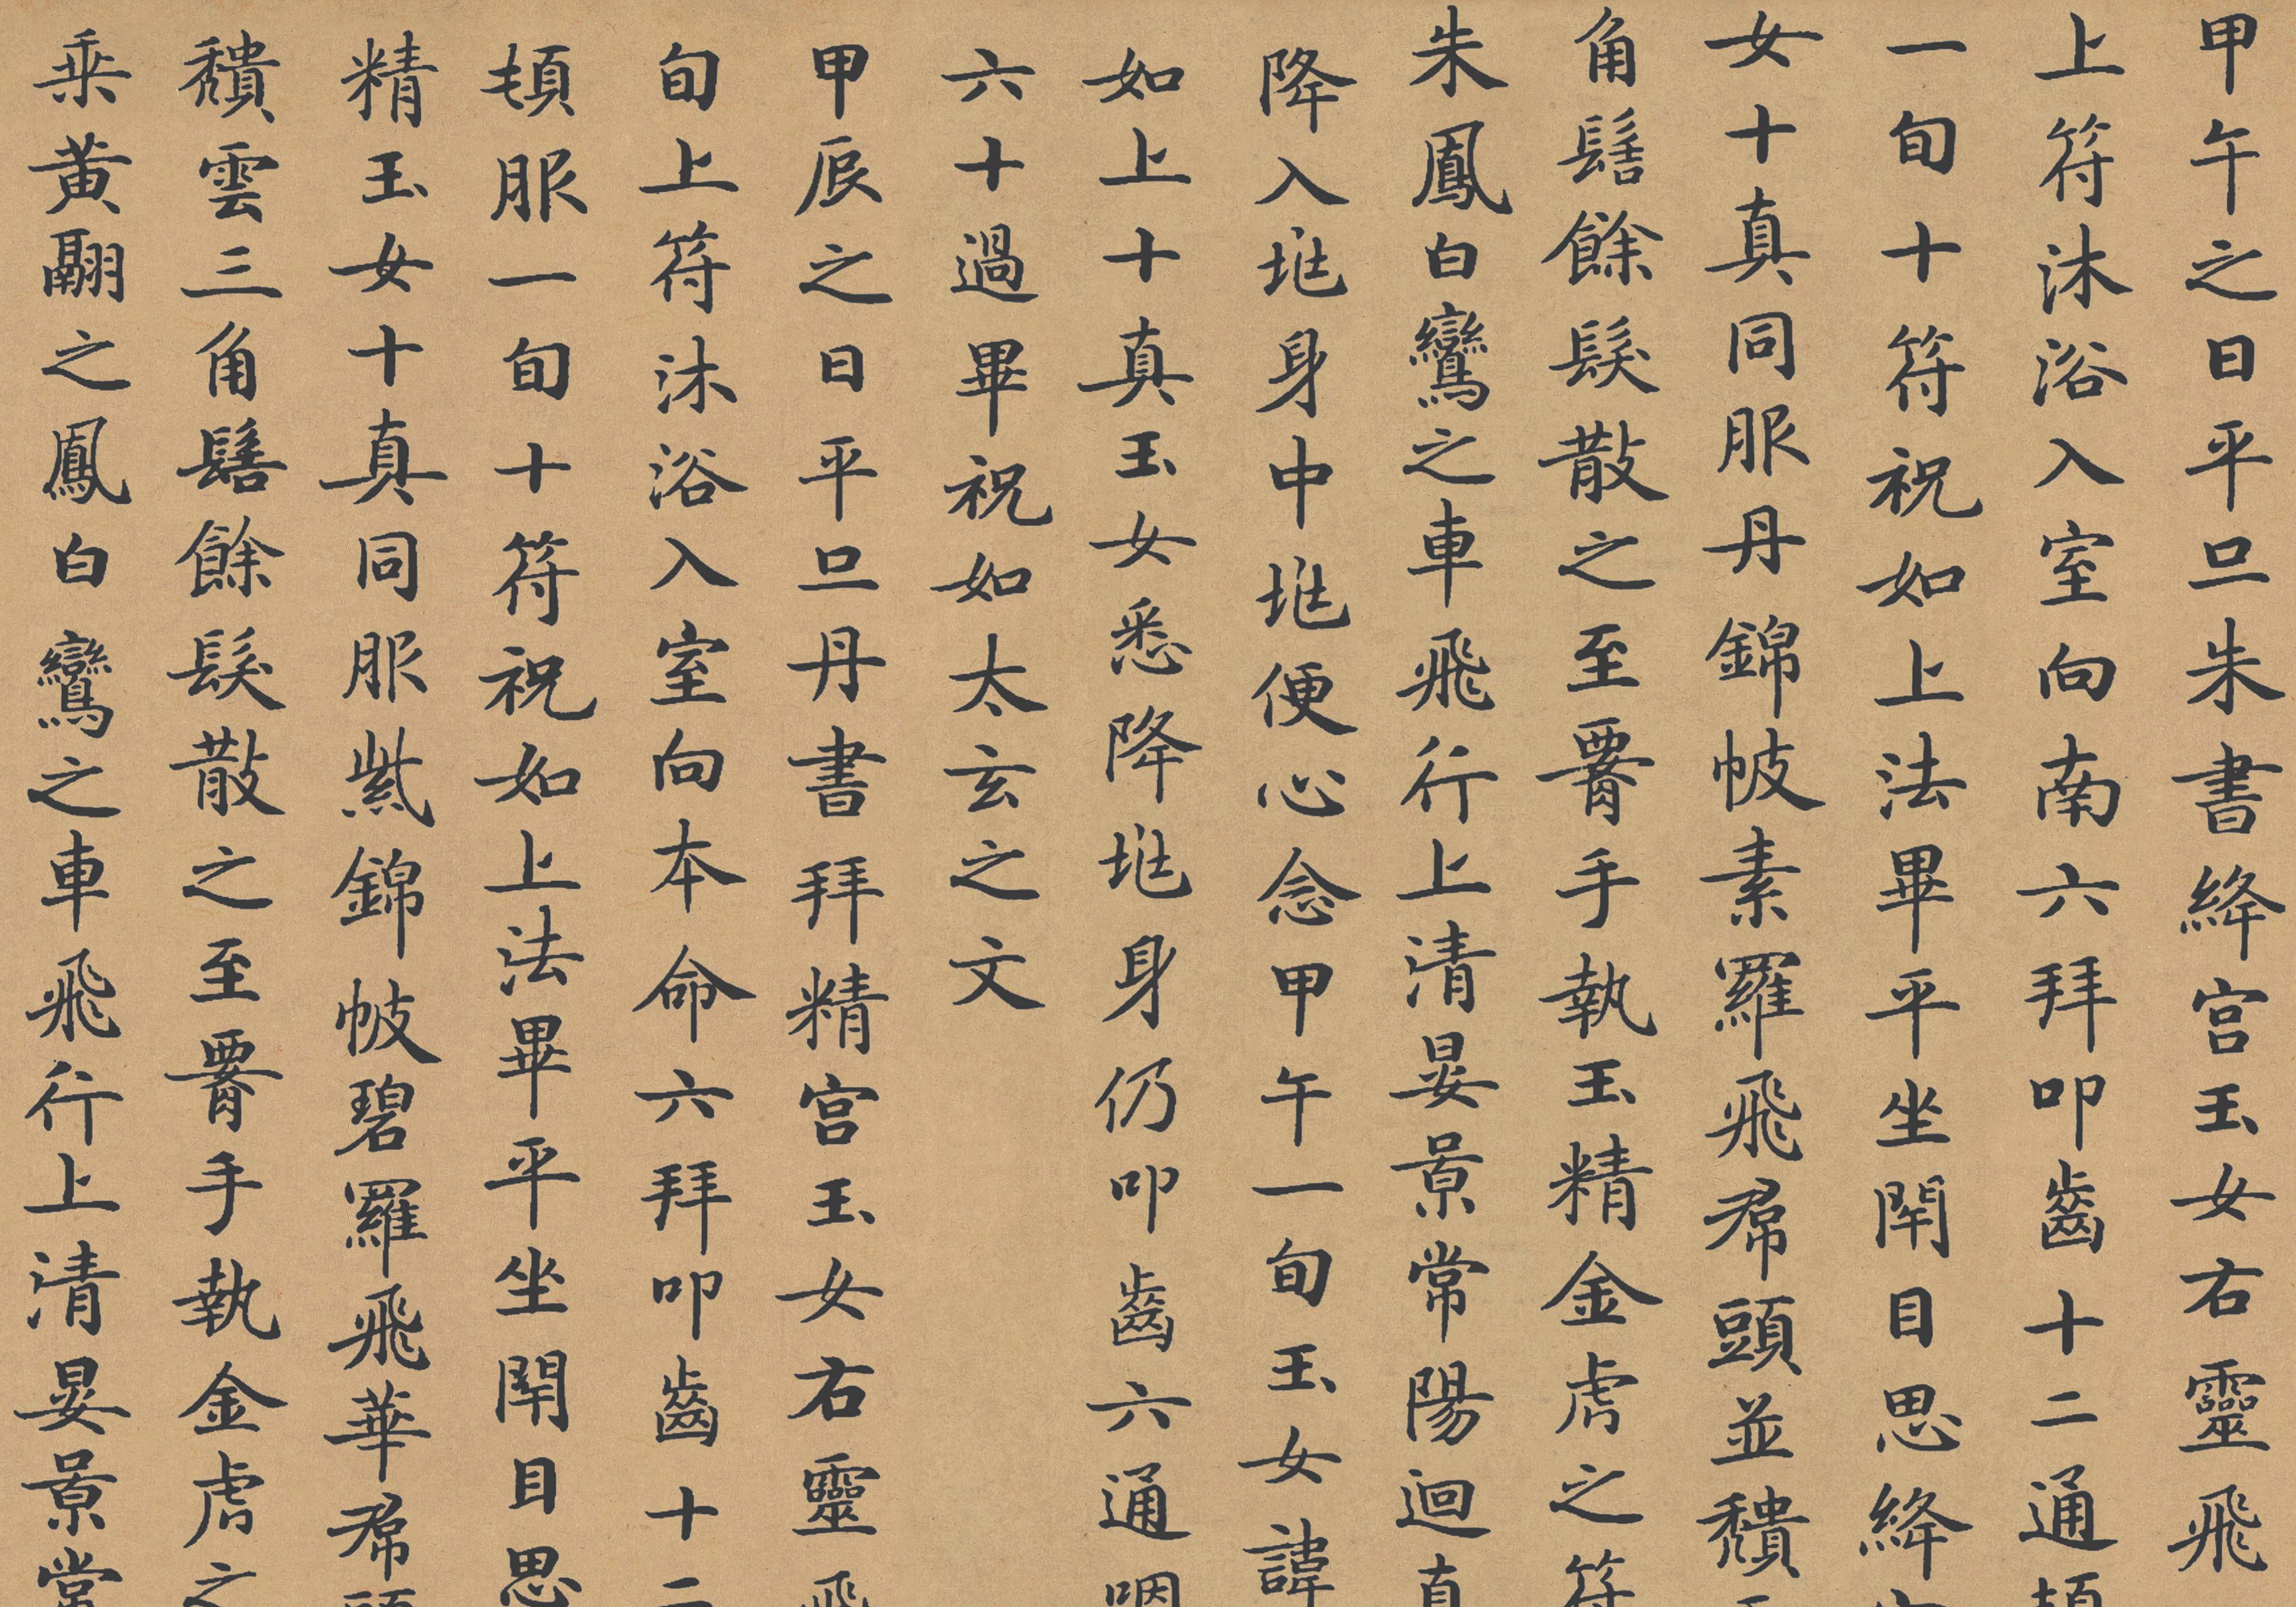 甲午之日平旦朱書絳宮玉女右靈飛
上符沐浴入室向南六拜叩齒十二通頓
一旬十符祝如上法畢平坐閇目思絳宮
女十真同服丹錦帔素羅飛帬頭並穨雲
角髻餘髮散之至䙅手執玉精金虎之符
朱鳳白鸞之車飛行上清晏景常陽迴真
降入𡉏身中𡉏便心念甲午一旬玉女諱
如上十真玉女悉降𡉏身仍叩齒六通咽
六十過畢祝如太玄之文
甲辰之日平旦丹書拜精宮玉女右靈飛
旬上符沐浴入室向本命六拜叩齒十二
頓服一旬十符祝如上法畢平坐閇目思
精玉女十真同服紫錦帔碧羅飛華帬頭
穨雲三角髻餘髮散之至䙅手執金虎之
乘黃翮之鳳白鸞之車飛行上清晏景常